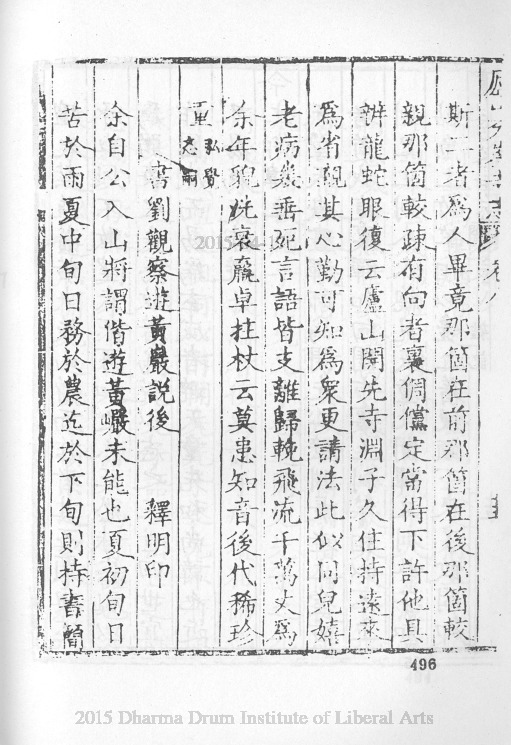 卷八
斯二者為人畢竟那箇在前那箇在後那箇較
親那箇較疎有向者裏倜儻定當得下許他具
辨龍蛇眼復云廬山開先寺淵子久住持遠來
為省覲其心勤可知為衆更請法此似同兒嬉
老病㡬垂死言語皆支離歸輓飛流千萬丈為
余年貌恍衰羸卓拄杖云莫患知音後代稀珍
重弘賢忞嗣
書劉觀察遊黃巖說後 釋明印
余自公入山將謂偕遊黃巖未能也夏初旬日
苦於雨夏中旬日務於農迄於下旬則持書簡
496
2015 Dharma Drum Institute of Liberal Arts